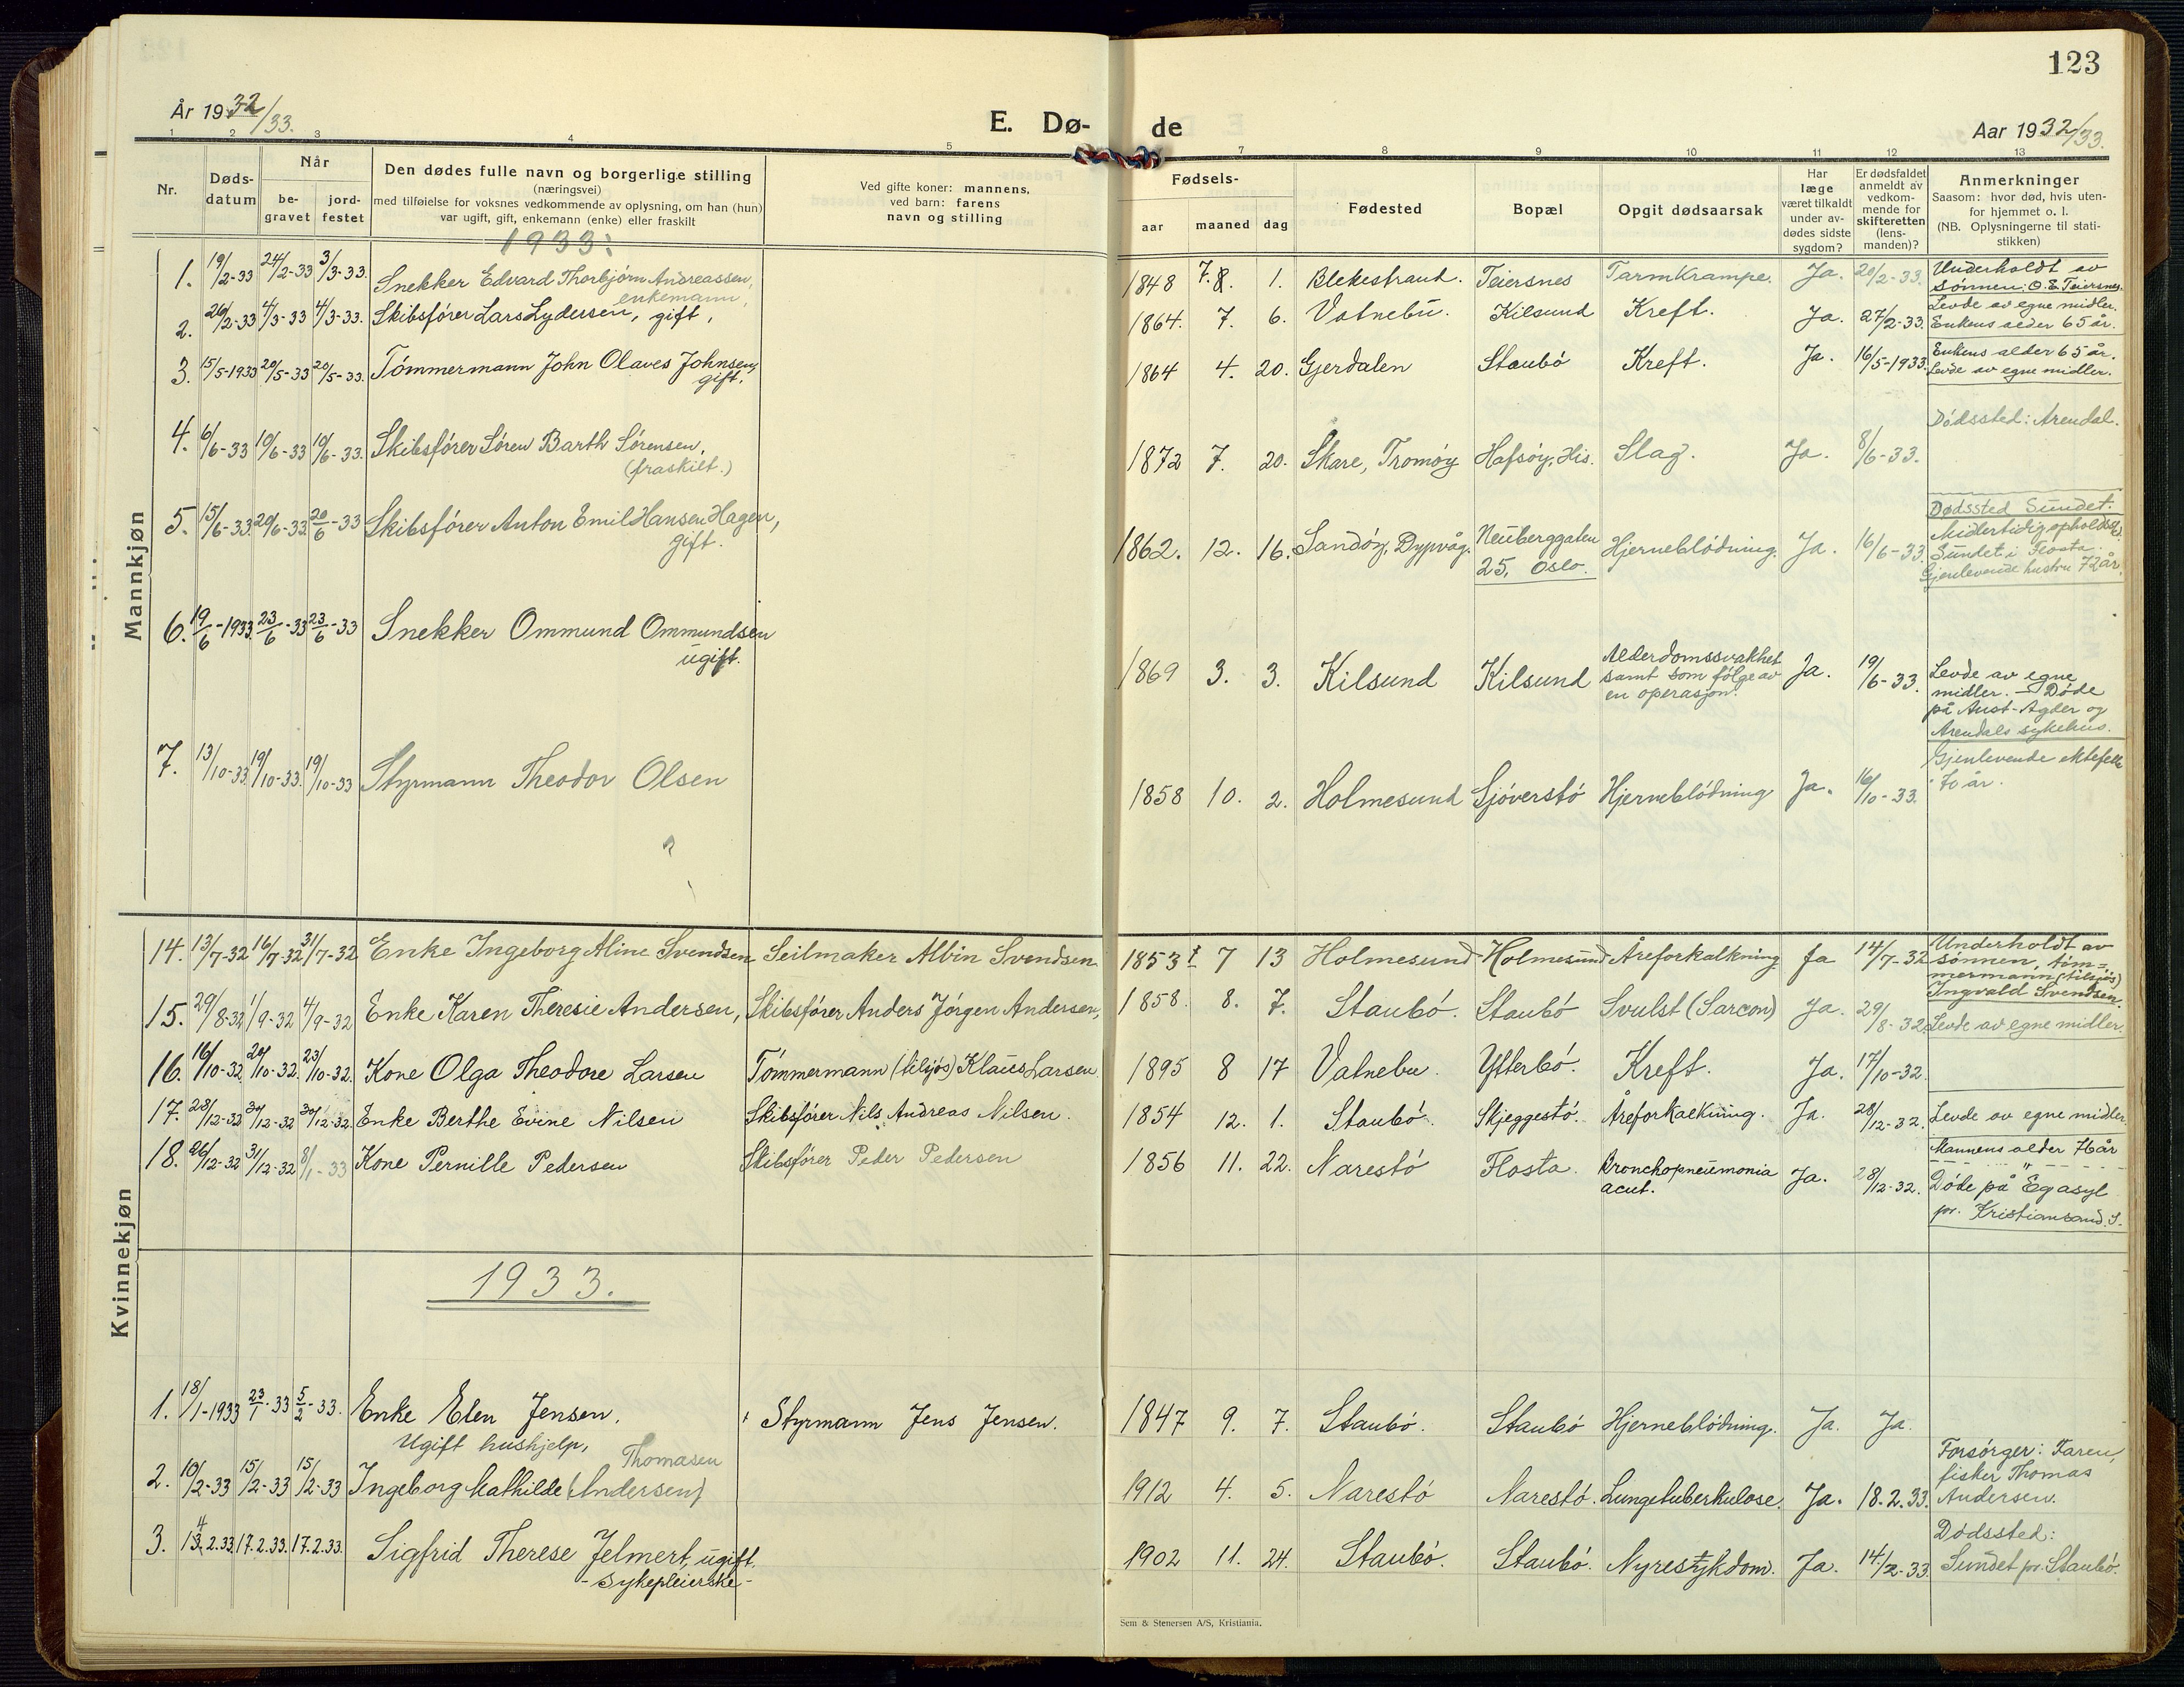 123
År 1932/33.
E. Dø-
de
Aar 1932/33.
1 2 3 4 5 7 8 9 10 11 12 13
Nr.
Døds-
datum
Når
be-
gravet
jord-
festet
Den dødes fulle navn og borgerlige stilling
(næringsvei)
med tilføielse for voksnes vedkommende av oplysning, om han (hun)
var ugift, gift, enkemann (enke) eller fraskilt
Ved gifte koner: mannens,
ved barn: farens
navn og stilling
Fødsels-
aar maaned dag
Fødested
Bopæl
Opgit dødsaarsak
Har
læge
været tilkaldt
under av-
dødes sidste
sygdom?
Er dødsfaldet
anmeldt av
vedkom-
mende for
skifteretten
(lens-
manden)?
Anmerkninger
Saasom: hvor død, hvis uten-
for hjemmet o. l.
(NB. Oplysningerne til stati-
stikken)
Mannkjøn
1933:
1. 19/2-33 24/2-33 3/3-33. Snekker Edvard Thorbjørn Andreassen, 1848 7. 8. 1. Blekestrand. Teiersnes Tarmkrampe. Ja. 20/2-33. Underholdt av
enkemann, sønnen: O. E. Teiersnes.
2. 26/2-33 4/3-33 4/3-33. Skibsfører Lars Lydersen, gift, 1864. 7. 6. Vatnebu. Kilsund Kreft. Ja. 27/2-33. Levde av egne midler.
Enkens alder 65 år.
3. 15/5-1933 20/5-33 20/5-33. Tömmermann John Olaves Johnsen, 1864 4. 20. Gjerdalen Staubö Kreft. Ja. 16/5-1933. Enkens alder 65 år.
gift. Levde av egne midler.
4. 6/6-33 10/6-33 10/6-33. Skibsfører Sören Barth Sörensen, 1872 7. 20. Skare, Tromöy Hafsöy, His. Slag. Ja. 8/6-33. Dødssted: Arendal.
(fraskilt.)
5. 15/6-33 20/6-33 20/6-33 Skibsförer Anton Emil Hansen Hagen, 1862. 12. 16. Sandöy, Dypvåg. Neuberggaten Hjerneblödning. Ja. 16/6-33 Dødssted Sundet.
gift. 25, Oslo. Midlertidig opholdssted.
Sundet i Flosta.
Gjenlevende hustru 72 år.
6. 19/6-1933 23/6-33 23/6-33 Snekker Ommund Ommundsen 1869 3. 3. Kilsund Kilsund Alderdomssvakhet Ja. 19/6-33 Levde av egne
ugift. samt som følge av midler. — Döde
en operasjon. på Aust-Agder og
Arendals sykehus.
7. 13/10-33 19/10-33. 19/10-33 Styrmann Theodor Olsen 1858 10. 2. Holmesund Sjöverstö Hjerneblödning Ja. 16/10-33. Gjenlevende ektefelle
70 år.
Kvinnekjøn
14. 13/7-32 16/7-32 31/7-32 Enke Ingeborg Aline Svendsen Seilmaker Albin Svendsen 1853 7 13 Holmesund Holmesund Åreforkalkning Ja 14/7-32 Underholdt av
sønnen, töm-
mermann (tilsjös)
Ingvald Svendsen.
15. 29/8-32 1/9-32 4/9-32 Enke Karen Theresie Andersen, Skibsfører Anders Jörgen Andersen, 1858. 8. 7. Staubö. Staubö Svulst (Sarcon) Ja. 29/8-32 Levde av egne midler.
16. 16/10-32 20/10-32. 23/10-32. Kone Olga Theodore Larsen Tömmermann (tilsjös) Klaus Larsen. 1895 8 17 Vatnebu. Ytterbö. Kreft. Ja. 17/10-32.
17. 23/12-32 30/12-32 30/12-32. Enke Berthe Evine Nilsen Skibsfører Nils Andreas Nilsen. 1854 12. 1. Staubö. Skjeggestö. Åreforkalkning. Ja. 28/12-32. Levde av egne midler
18. 26/12-32 31/12-32 8/1-33 Kone Pernille Pedersen Skibsfører Peder Pedersen 1856 11. 22. Narestö Flosta. Bronchopneumonia Ja. 28/12-32. Mannens alder 76 år
acut. Döde på Eg asyl
pr. Kristiansand. S.
1933.
1. 18/1-1933 23/1-33 5/2-33. Enke Elen Jensen. Styrmann Jens Jensen. 1847 9. 7. Staubö. Staubö Hjerneblödning. Ja. Ja.
Ugift hushjelp, Thomasen
2. 10/2-33 15/2-33 15/2-33 Ingeborg Mathilde (Andersen) 1912 4. 5. Narestö Narestö. Lungetuberkulose. Ja. 18.2.33. Forsörger: Faren,
fisker Thomas
Andersen.
3. 14.2.33. 17.2.33. 17.2.33. Sigfrid Therese Jelmert, ugift. 1902 11. 24. Staubö. Staubö. Nyresykdom. Ja. 14./2-33. Dødssted:
- Sykepleierske - Sundet pr. Staubö.
Sem & Stenersen A/S, Kristiania.